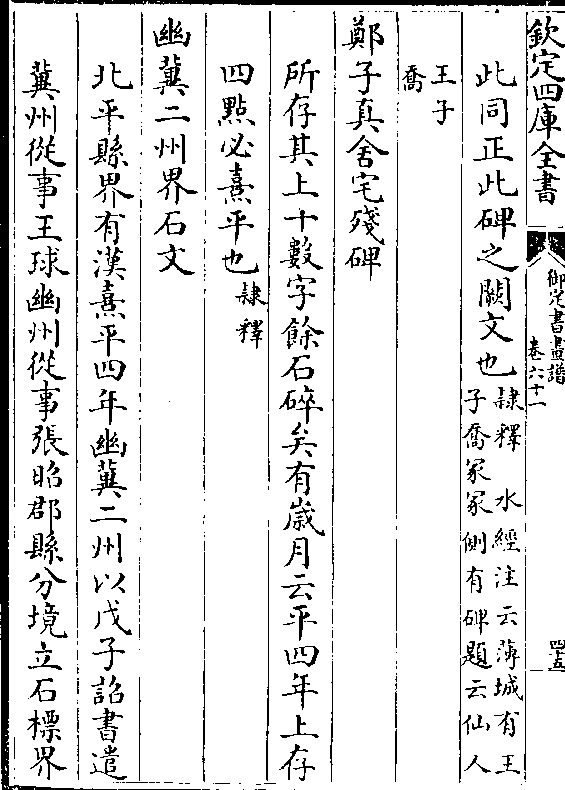 欽定四庫全書
御定書畫譜
卷六十一
四五
此同正此碑之闕文也隸釋 水經注云薄城有王
子喬冢冢側有碑題云仙人
王子
喬
鄭子真舍宅殘碑
所存其上十數字餘石碎矣有嵗月云平四年上存
四點必熹平也隸釋
幽冀二州界石文
北平縣界有漢熹平四年幽冀二州以戊子詔書遣
冀州從事王球幽州從事張昭郡縣分境立石標界